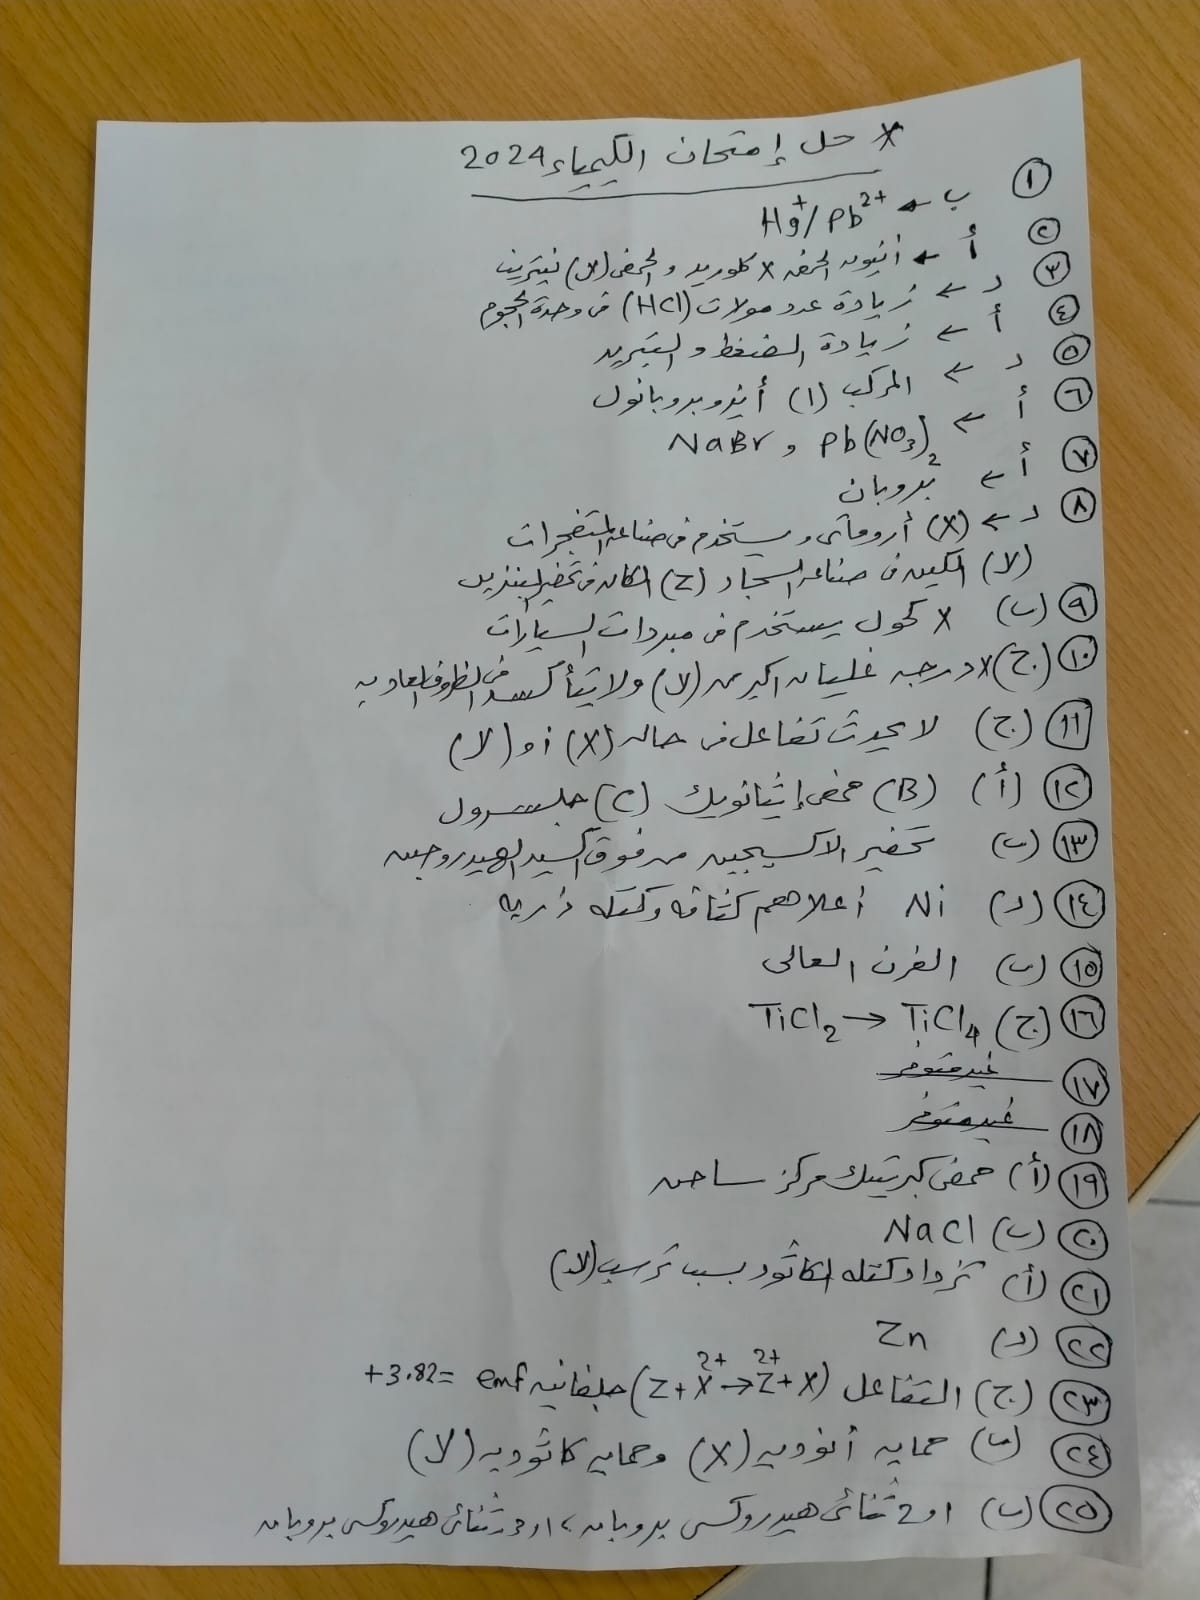 * حل إمتحان الكيمياء 2024
١ ب ← Hg⁺/Pb²⁺
٢ أ ← أنيون الحمض X كلوريد و الحمض (Y) نيتريت
٣ د ← زيادة عدد مولات (HCl) فى وحدة الحجوم
٤ أ ← زيادة الضغط و التبريد
٥ د ← المركب (1) أيزوبروبانول
٦ أ ← Pb(NO₃)₂ و NaBr
٧ أ ← بروبان
٨ د ← (X) أروماتى و يستخدم فى صناعة المتفجرات
(Y) ألكين فى صناعة السجاد (Z) ألكان فى تحضير البنزين
٩ (ب) X كحول يستخدم فى مبردات السيارات
١٠ (ج) X درجة غليانه اكبر من (Y) ولا يتأكسد فى الظروف العادية
١١ (ج) لا يحدث تفاعل فى حالة (X) أو (Y)
١٢ (أ) (B) حمض إيثانويك (C) جلسرول
١٣ (ب) تحضير الاكسيجين من فوق أكسيد الهيدروجين
١٤ (د) Ni أعلاهم كثافة وكتلة ذرية
١٥ (ب) الفرن العالى
١٦ (ج) TiCl₂ → TiCl₄
١٧ غير متوفر
١٨ غير متوفر
١٩ (أ) حمض كبريتيك مركز ساخن
٢٠ (ب) NaCl
٢١ (أ) تزداد كتلة الكاثود بسبب ترسيب (Y)
٢٢ (د) Zn
٢٣ (ج) التفاعل (Z + X²⁺ → Z²⁺ + X) جلفانية emf = +3.82
٢٤ (ب) حماية أنودية (X) وحماية كاثودية (Y)
٢٥ (ب) 1و2 ثنائى هيدروكسى بروبان ، 1و3 ثنائى هيدروكسى بروبان